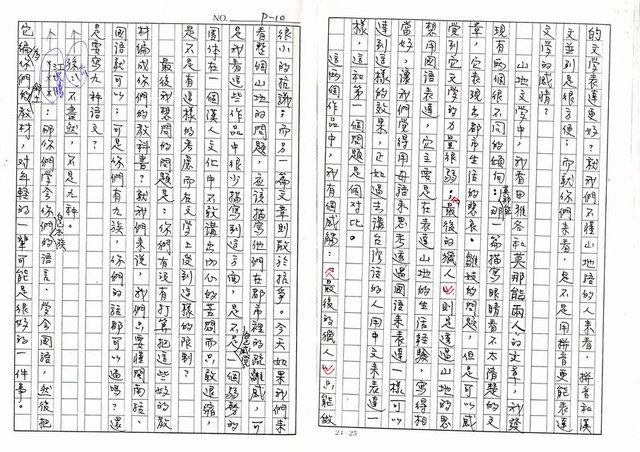 的文學表達更好？就我們不懂山地語的人來看，拼音和漢
文並列是很方便；而就你們來看，是不是用拼音更能表達
文學的感情？
山地文學中，我看田雅各和莫那能兩人的文章，我發
現有兩個很不同的傾向：莫那能那一篇描寫眼睛看不太清楚的文
章，它表現出都市生活的悲哀、雛妓的問題，但是可以感
覺到它文學的力量很弱。「最後的獵人」則是透過山地的思
想用國語表達，它主要是在表達山地的生活經驗，寫得相
當好，讓我們覺得用母語來思考透過國語來表達一樣可以
達到這樣的效果，正如過去講台灣話的人用中文來表達一
樣，這和第一個問題是個對比。
這兩個作品中，我有個感觸：「最後的獵人」只能做
24×25
NO. P-10
很小的抗議；而另一篇文章則敢於抗爭。今天如果我們來
看整個山地的問題，應該描寫他們在都市裡的疏離感，可
是我看這些作品中很少描寫到這方面，是不是一個弱勢的
團体在一個漢人文化中不敢講出內心的苦悶而只敢退縮，
是不是有這樣的考慮而在文學上受到這樣的限制？
最後我想問的問題是：你們有沒有打算把這些好的教
材編成你們的教科書？就我們來說，我們只要懂閩南話、
國語就可以；可是你們有九族，你們的話都可以通嗎？還
是要寫九種語文？
不盡然，不是九種。
那你們學會你們的語言、學會國語，然後把
它編你們的教材，對年輕的一輩可能是很好的一件事。